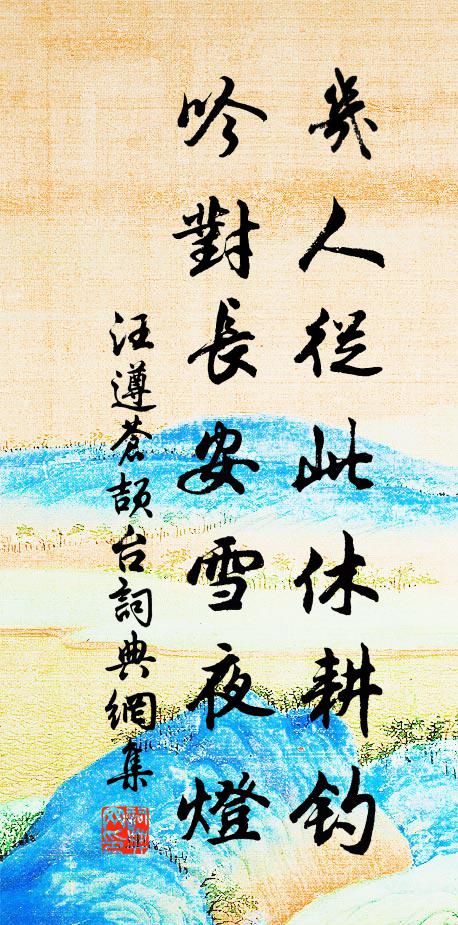 幾人從此休耕釣
吟對長安雪夜燈
汪遵蒼頡台詞典網集